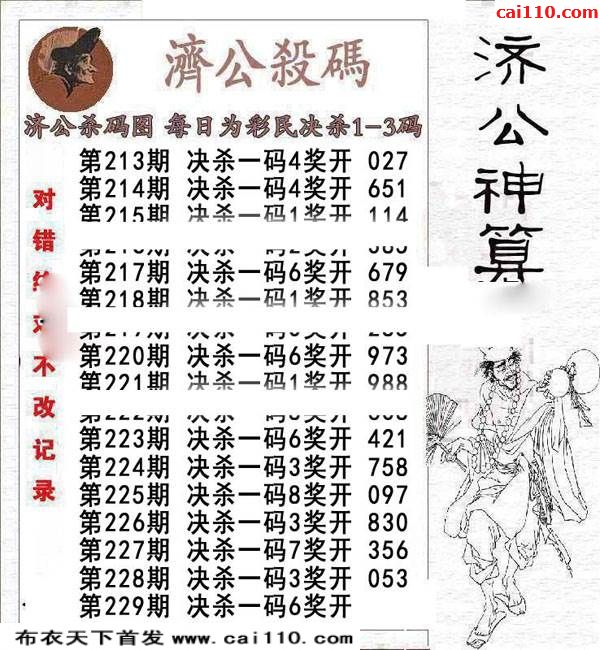 cai110.com
濟公殺碼
济公神算
济公杀码图 每日为彩民决杀1-3码
对错 不改记录
第213期 决杀一码4奖开 027
第214期 决杀一码4奖开 651
第215期 决杀一码1奖开 114
第217期 决杀一码6奖开 679
第218期 决杀一码1奖开 853
第220期 决杀一码6奖开 973
第221期 决杀一码1奖开 988
第223期 决杀一码6奖开 421
第224期 决杀一码3奖开 758
第225期 决杀一码8奖开 097
第226期 决杀一码3奖开 830
第227期 决杀一码7奖开 356
第228期 决杀一码3奖开 053
第229期 决杀一码6奖开
布衣天下首发 www.cai110.com